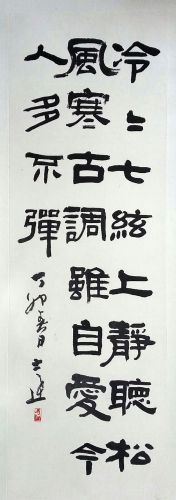 冷〻七絃上靜聽松
風寒古調雖自愛今
人多不彈
丁卯春日